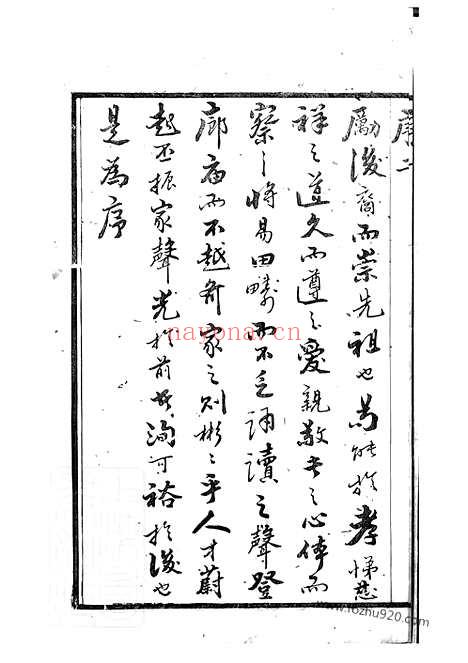 序二
勵後裔而崇先祖也苟能於孝悌慈
祥之道久而遵之愛親敬長之心体而
察之將易田疇而不乏誦讀之聲登
廊廟而不越有家之則彬彬乎人才蔚
起丕振家聲光於前者洵可裕於後也
是為序
nayona.cn
www.fozhu920.com